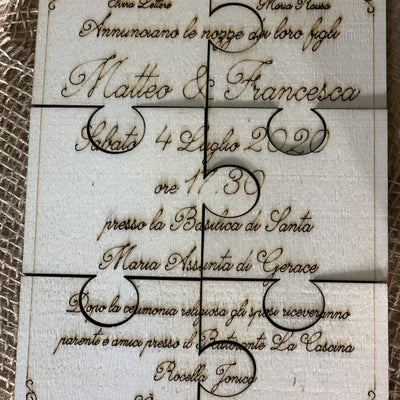 Elvira Lettere Maria Rausa
Annunciano le nozze dei loro figli
Matteo & Francesca
Sabato 4 Luglio 2020
ore 17.30
presso la Basilica di Santa
Maria Assunta di Gerace
Dopo la cerimonia religiosa gli sposi riceveranno
parenti e amici presso il Ristorante La Cascina
Rocella Jonica